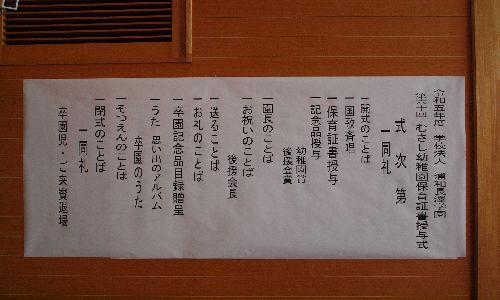 令和五年度　学校法人　浦和長澤学園
むさし幼稚園保育証書授与式
式次第
一同礼
一開式のことば
一国歌斉唱
一保育証書授与
一記念品授与
幼稚園賞
後援会賞
一園長のことば
一お祝いのことば
後援会長
一送ることば
一お礼のことば
一卒園記念品目録贈呈
一うた　思い出のアルバム
卒園のうた
一そつえんのことば
一閉式のことば
一同礼
卒園児・ご来賓退場